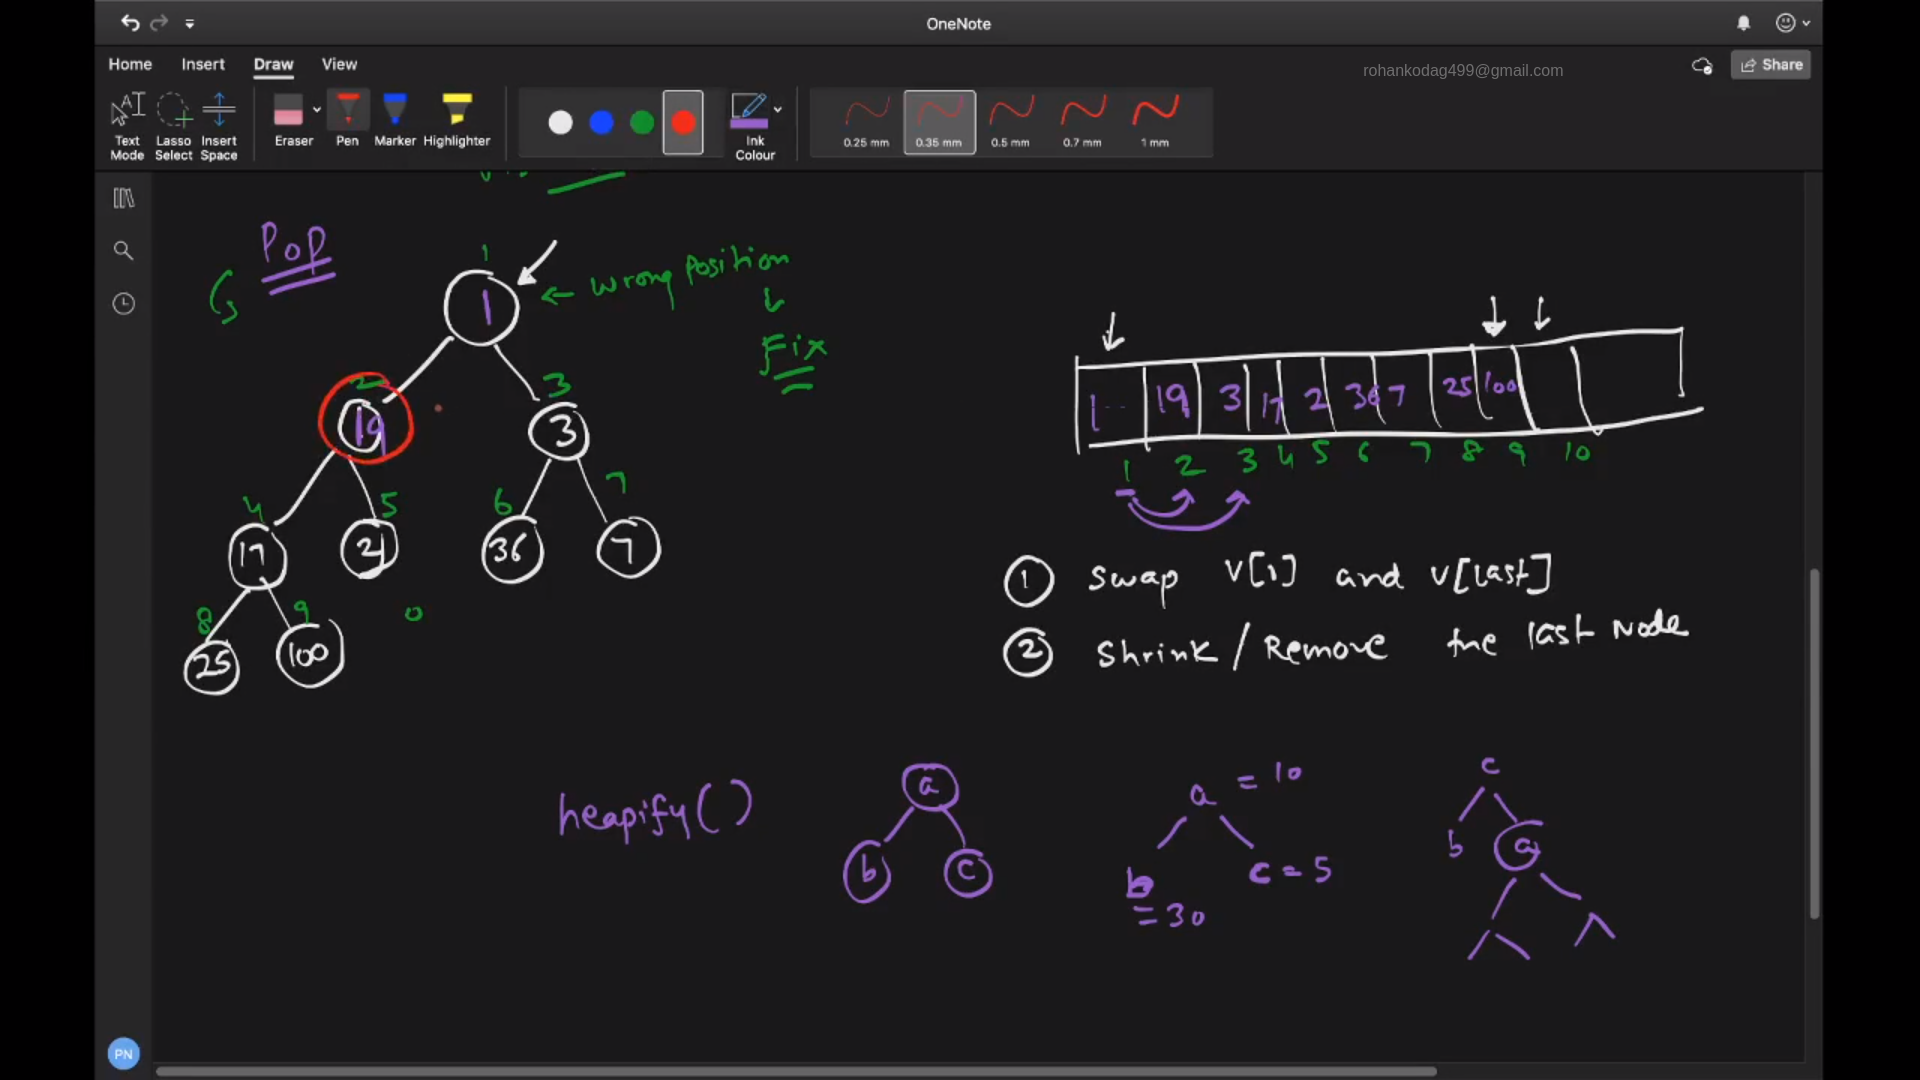 OneNote
Home Insert Draw View
rohankodag499@gmail.com
Share
Text Mode
Lasso Select
Insert Space
Eraser
Pen
Marker
Highlighter
Ink Colour
0.25 mm
0.35 mm
0.5 mm
0.7 mm
1 mm
Pop
1
1
← wrong position
Fix
2
19
3
3
4
17
5
6
36
7
7
8
25
9
100
0
1 19 3 17 2 36 7 25 100
1 2 3 4 5 6 7 8 9 10
1 swap V[1] and V[last]
2 Shrink / Remove the last Node
heapify()
a
b c
a = 10
b = 30
c = 5
c
b a
PN